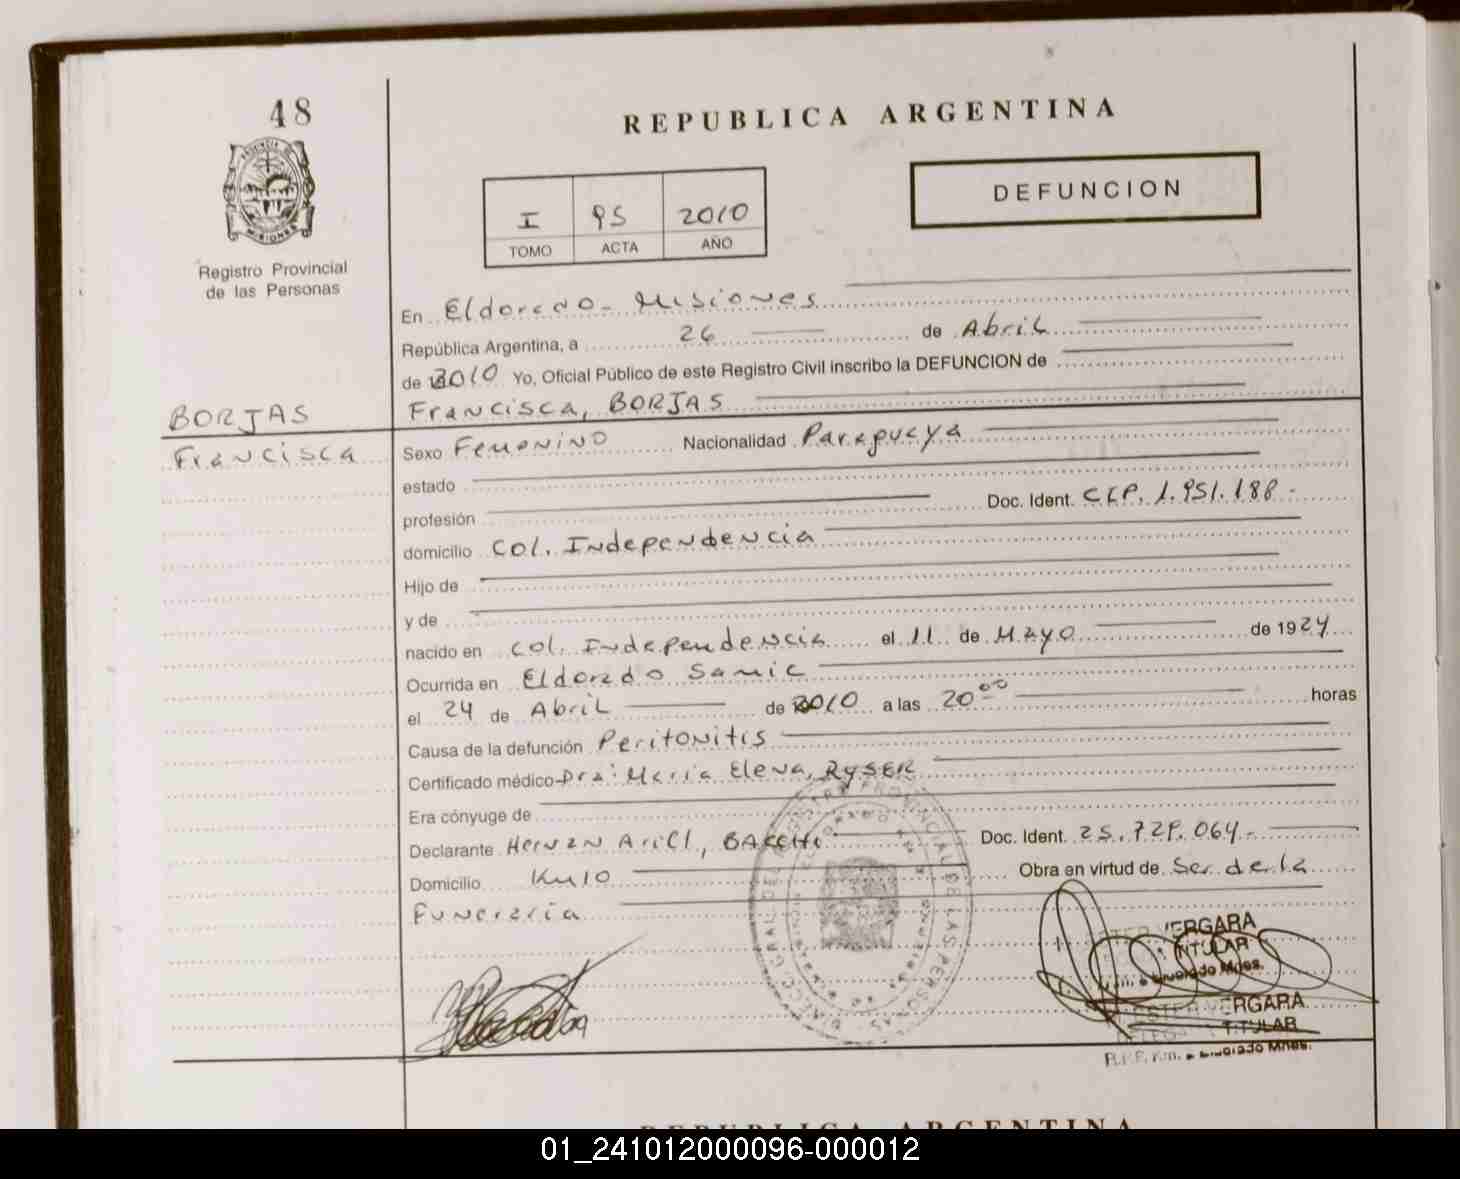 48
REPUBLICA ARGENTINA
DEFUNCION
I 95 2010
TOMO ACTA AÑO
Registro Provincial
de las Personas
En Eldorado - Misiones
República Argentina, a 26 de Abril
de 2010 Yo, Oficial Público de este Registro Civil inscribo la DEFUNCION de
BORJAS
Francisca, BORJAS
Francisca
Sexo Femenino Nacionalidad Paraguaya
estado
profesión Doc. Ident. CIP. 1.951.188.-
domicilio Col. Independencia
Hijo de
y de
nacido en Col. Independencia el 11 de Mayo de 1924
Ocurrida en Eldorado Samic
el 24 de Abril de 2010 a las 20⁰⁰ horas
Causa de la defunción Peritonitis
Certificado médico Dra: María Elena, RYSER
Era cónyuge de
Declarante Hernan Ariel, Doc. Ident. 25.729.064.-
Domicilio Km 10 Obra en virtud de Ser. de la
Funeraria
VERGARA
TITULAR
Eldorado Mnes.
ESTER VERGARA
TITULAR
Eldorado Mnes.
REPUBLICA ARGENTINA
01_241012000096-000012